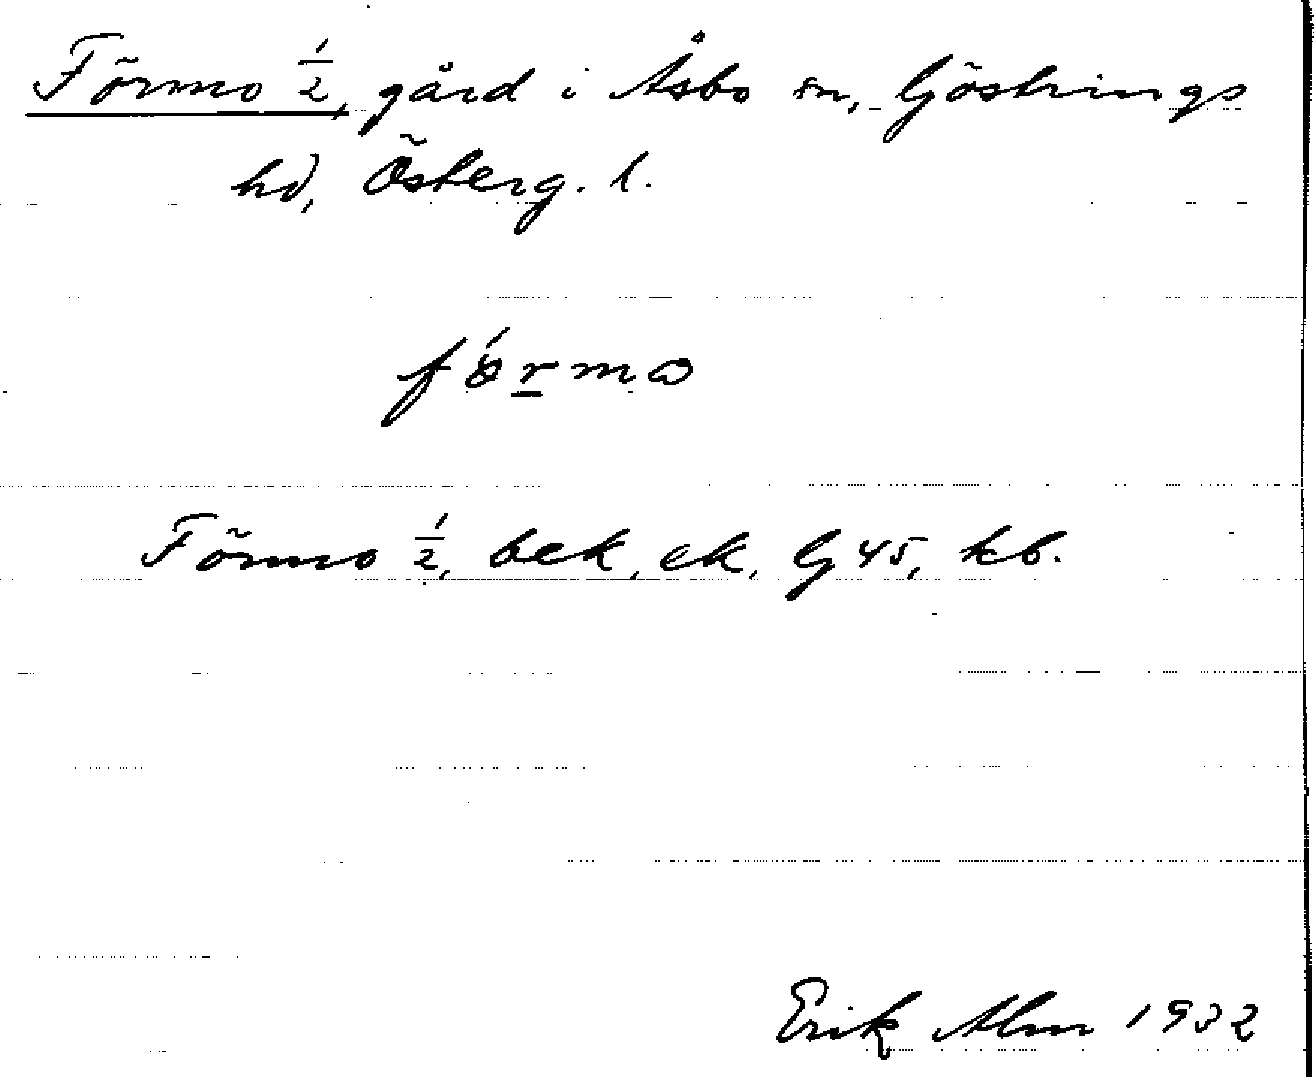 Förmo 1/2, gård i Åsbo sn, Göstrings
hd, Österg. l.
fǿrmɷ
Förmo 1/2, bek, ek, G 45, kb.
Erik Alm 1932